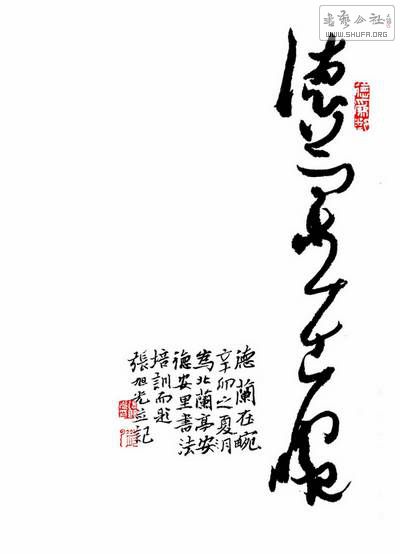 書藝公社
WWW.SHUFA.ORG
德蘭在畹
德蘭在畹
辛卯之夏月
為北蘭亭安
德安里書法
培訓而題
張旭光並記